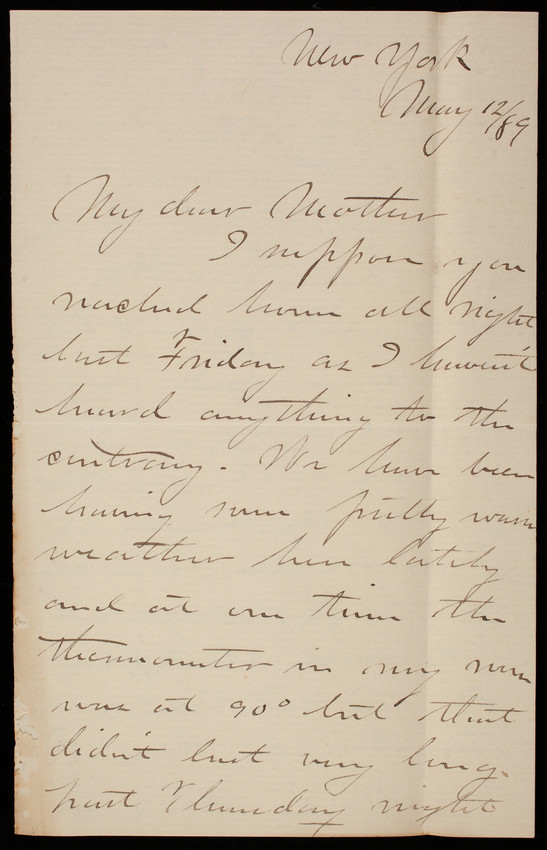 New York
May 12/89
My dear Mother
I suppose you
reached home all right
last Friday as I haven't
heard anything to the
contrary. We have been
having some pretty warm
weather here lately
and at one time the
thermometer in my room
was at 90° but that
didn't last very long.
past Thursday night